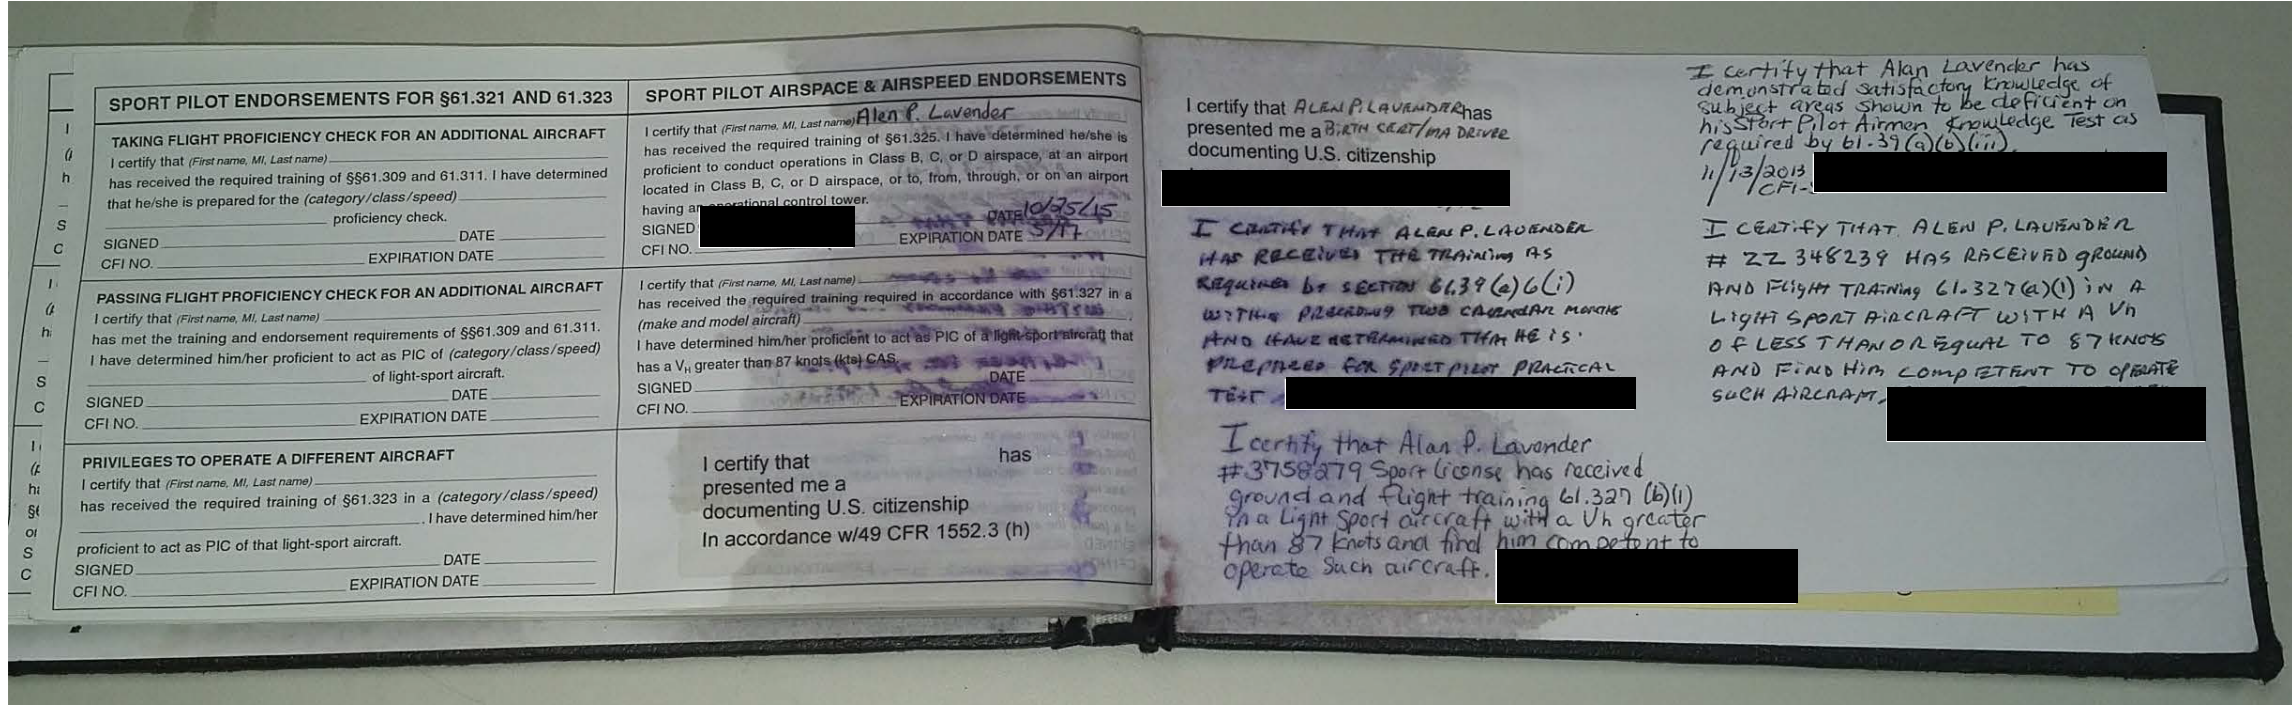 SPORT PILOT ENDORSEMENTS FOR §61.321 AND 61.323
TAKING FLIGHT PROFICIENCY CHECK FOR AN ADDITIONAL AIRCRAFT
I certify that (First name, MI, Last name)
has received the required training of §§61.309 and 61.311. I have determined
that he/she is prepared for the (category/class/speed)
proficiency check.
SIGNED DATE
CFI NO. EXPIRATION DATE
PASSING FLIGHT PROFICIENCY CHECK FOR AN ADDITIONAL AIRCRAFT
I certify that (First name, MI, Last name)
has met the training and endorsement requirements of §§61.309 and 61.311.
I have determined him/her proficient to act as PIC of (category/class/speed)
of light-sport aircraft.
SIGNED DATE
CFI NO. EXPIRATION DATE
PRIVILEGES TO OPERATE A DIFFERENT AIRCRAFT
I certify that (First name, MI, Last name)
has received the required training of §61.323 in a (category/class/speed)
. I have determined him/her
proficient to act as PIC of that light-sport aircraft.
SIGNED DATE
CFI NO. EXPIRATION DATE
SPORT PILOT AIRSPACE & AIRSPEED ENDORSEMENTS
I certify that (First name, MI, Last name) Alen P. Lavender
has received the required training of §61.325. I have determined he/she is
proficient to conduct operations in Class B, C, or D airspace, at an airport
located in Class B, C, or D airspace, or to, from, through, or on an airport
having an operational control tower.
SIGNED DATE 10/25/15
CFI NO. EXPIRATION DATE 5/17
I certify that (First name, MI, Last name)
has received the required training required in accordance with §61.327 in a
(make and model aircraft)
I have determined him/her proficient to act as PIC of a light-sport aircraft that
has a VH greater than 87 knots (kts) CAS.
SIGNED DATE
CFI NO. EXPIRATION DATE
I certify that has
presented me a
documenting U.S. citizenship
In accordance w/49 CFR 1552.3 (h)
I certify that ALEN P. LAVENDER has
presented me a BIRTH CERT/MA DRIVER
documenting U.S. citizenship
I CERTIFY THAT ALEN P. LAVENDER
HAS RECEIVED THE TRAINING AS
REQUIRED by SECTION 61.39(a)6(i)
WITHIN PRECEDING TWO CALENDAR MONTHS
AND HAVE DETERMINED THAT HE IS.
PREPARED FOR SPORT PILOT PRACTICAL
TEST
I certify that Alan P. Lavender
#3758279 Sport license has received
ground and flight training 61.327 (b)(1)
in a Light Sport aircraft with a Vh greater
than 87 knots and find him competent to
operate such aircraft.
I certify that Alan Lavender has
demonstrated satisfactory knowledge of
subject areas shown to be deficient on
his Sport Pilot Airmen Knowledge Test as
required by 61.39(a)(b)(iii).
11/13/2013
CFI-
I CERTIFY THAT ALEN P. LAVENDER
# ZZ 348239 HAS RECEIVED GROUND
AND FLIGHT TRAINING 61.327(a)(1) IN A
LIGHT SPORT AIRCRAFT WITH A Vh
OF LESS THAN OR EQUAL TO 87 KNOTS
AND FIND HIM COMPETENT TO OPERATE
SUCH AIRCRAFT.